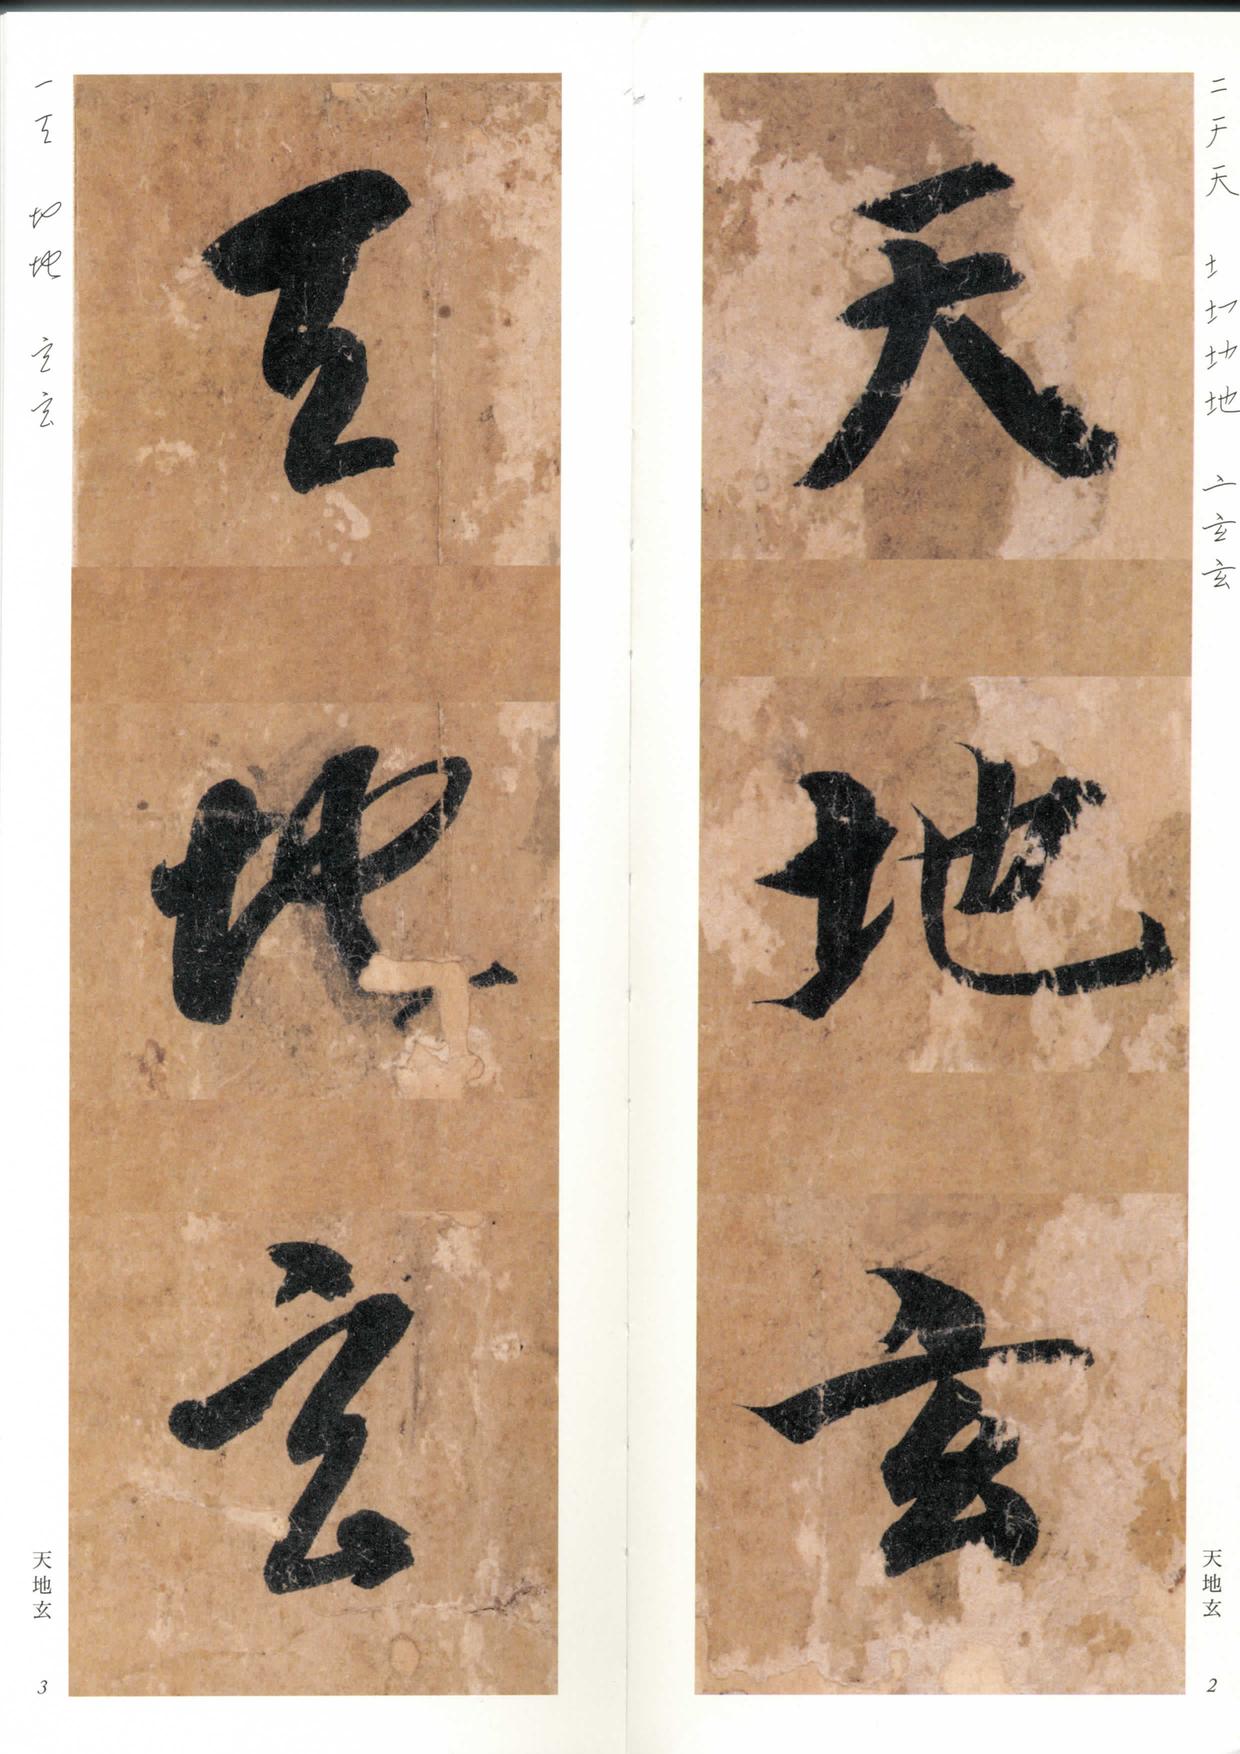 天地玄
二 干 天 土 圠 地 地 亠 玄 玄
天地玄
2
天地玄
一 天 地 地 玄 玄
天地玄
3